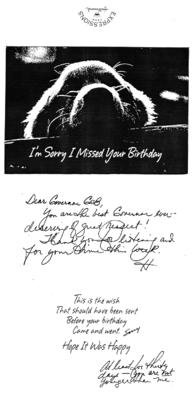 EXPRESSIONS
I'm Sorry I Missed Your Birthday
Dear Governor
You are the best Governor
deserving of great respect!
Thank you for listening and
for your time this week.
This is the wish
That should have been sent
Before your birthday
Came and went
Hope It Was Happy
At least for thirty
days — you are not
younger than me.